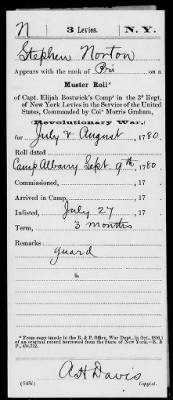 N 3 Levies. N.Y.
Stephen Norton
Appears with the rank of Pri on a
Muster Roll*
of Capt. Elijah Bostwick's Comp' in the 3d Regt.
of New York Levies in the Service of the United
States, Commanded by Col' Morris Graham,
(Revolutionary War,)
for July & August, 1780.
Roll dated
Camp Albany Sept 9th, 1780.
Commissioned, , 17 .
Arrived in Camp, , 17 .
Inlisted, July 27, 17 .
Term, 3 months
Remarks:
guard
* From copy (made in the R. & P. Office, War Dept., in Oct.,
of an original record borrowed from the State of New York.—R. &
P.
A H Davis
Copyist.